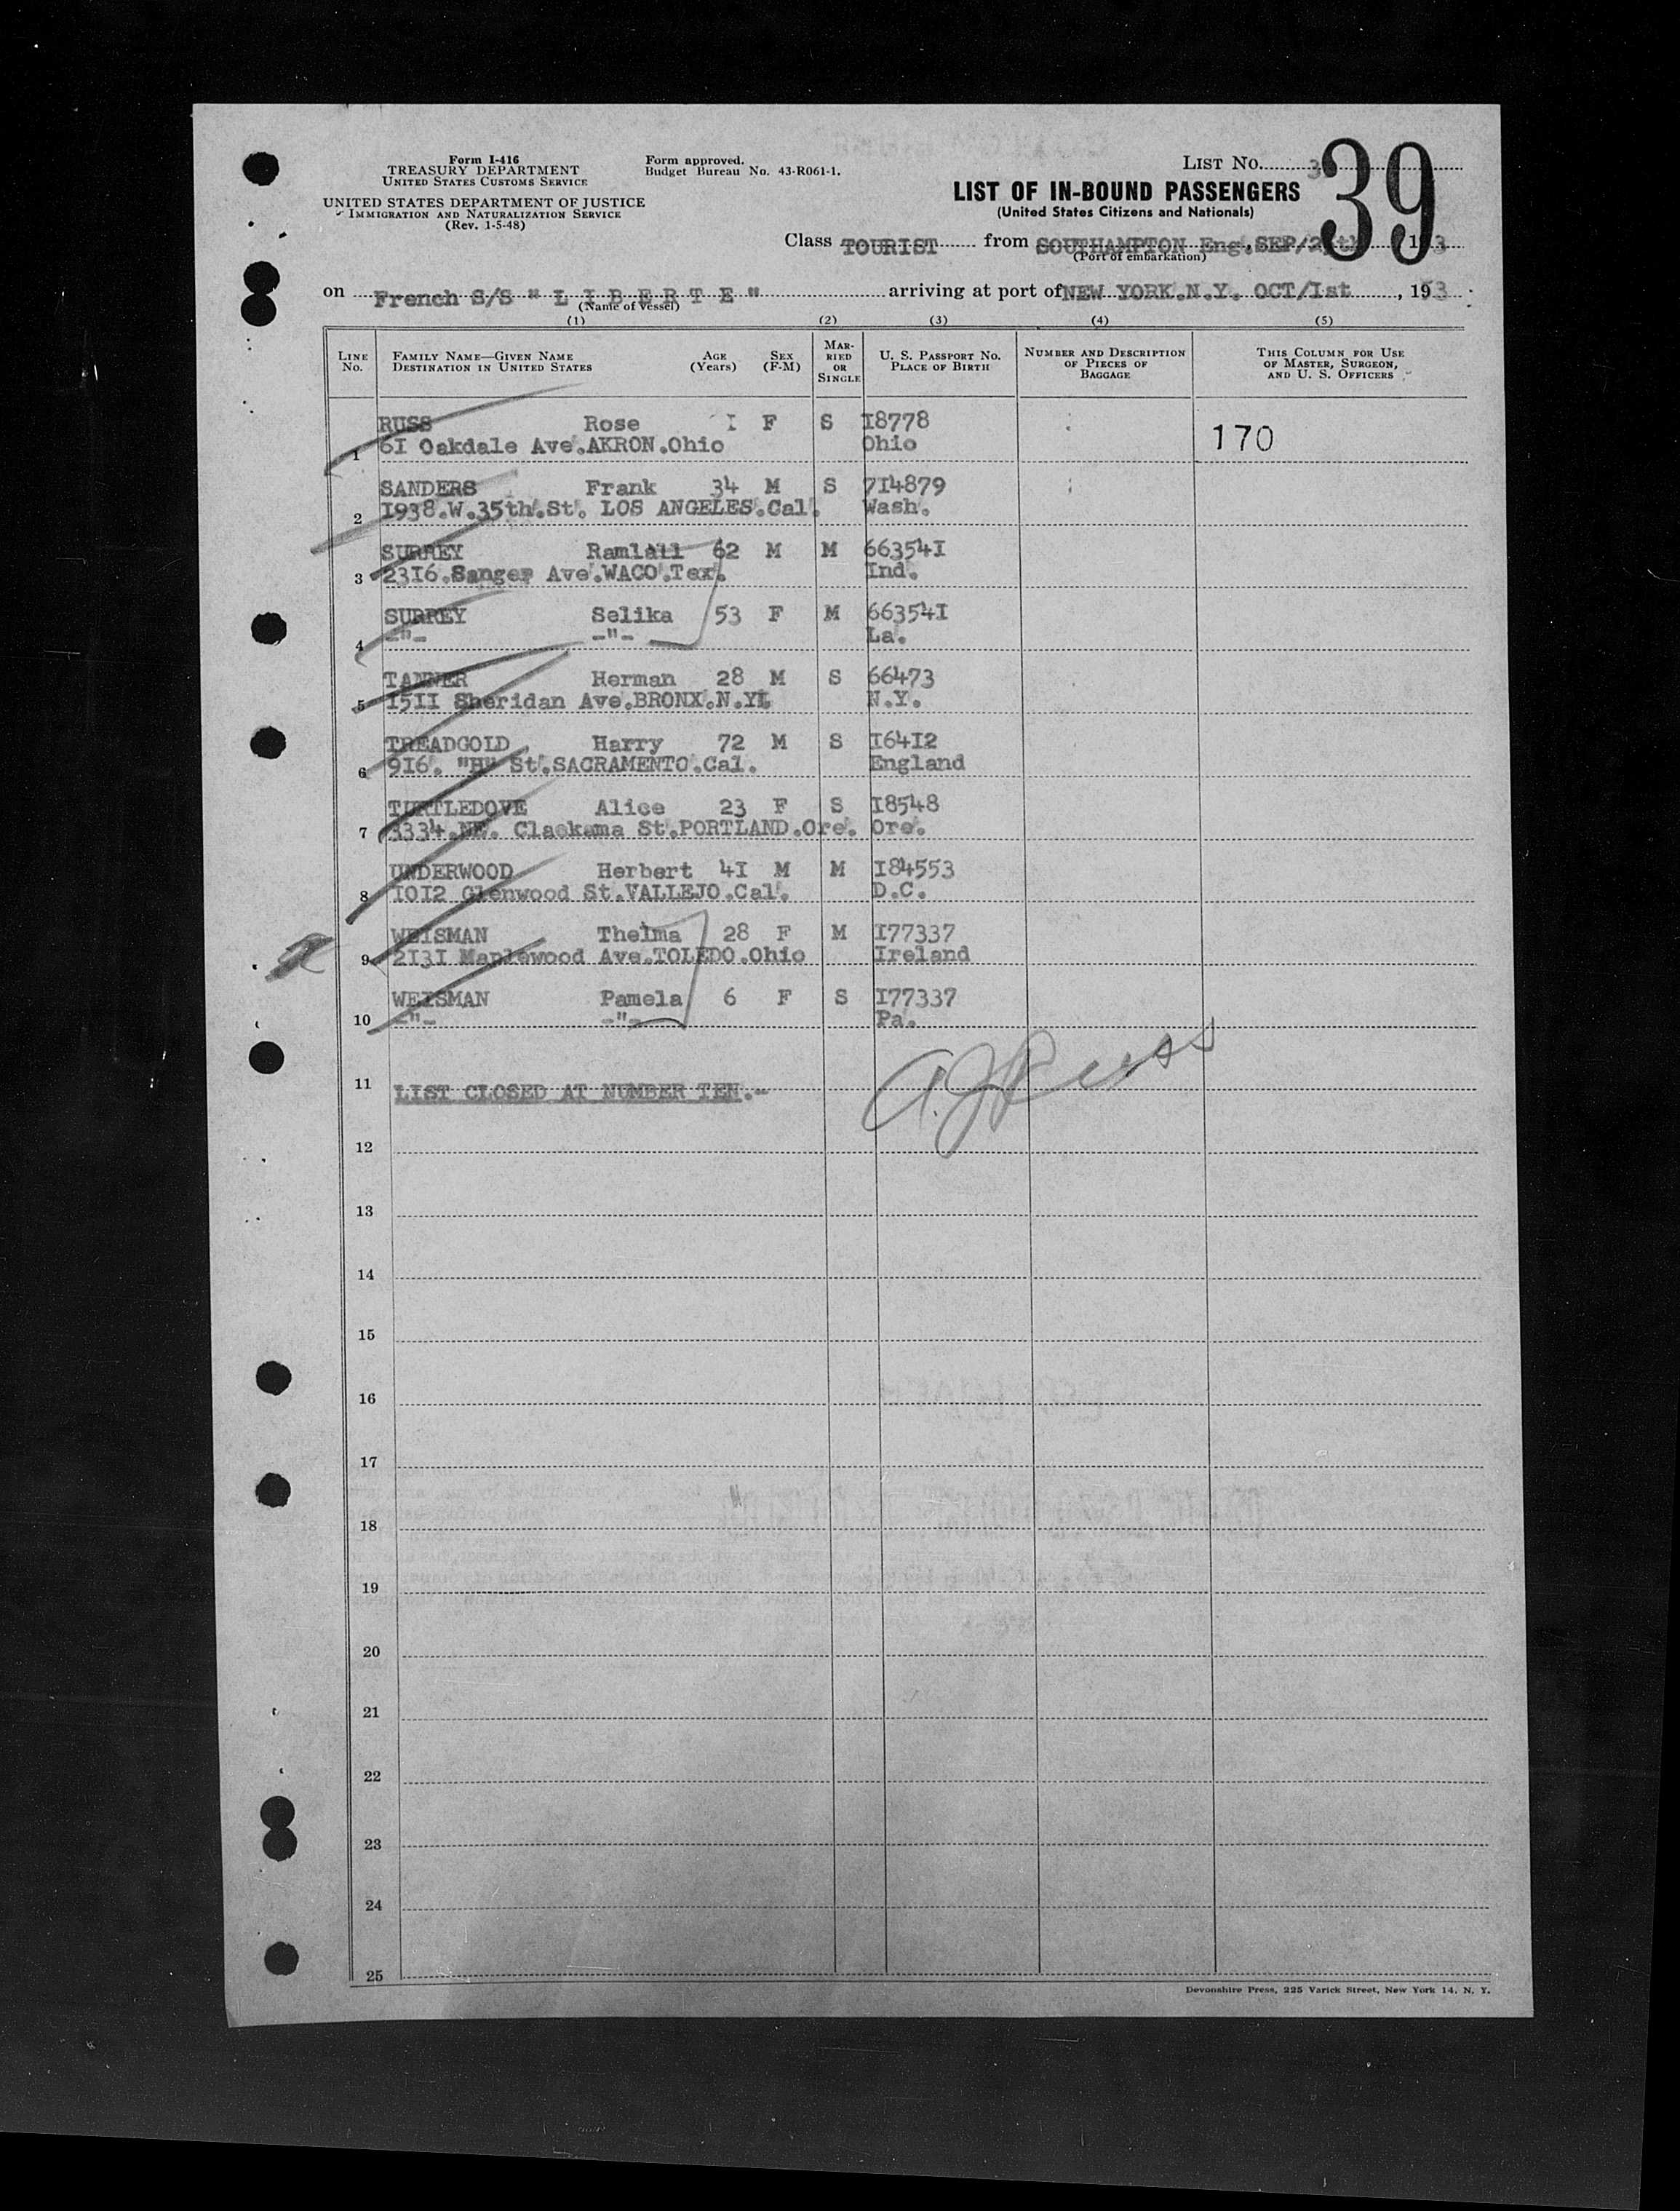 Form I-416
TREASURY DEPARTMENT
UNITED STATES CUSTOMS SERVICE
UNITED STATES DEPARTMENT OF JUSTICE
IMMIGRATION AND NATURALIZATION SERVICE
(Rev. 1-5-48)
Form approved.
Budget Bureau No. 43-R061-1.
LIST No. 39
LIST OF IN-BOUND PASSENGERS
(United States Citizens and Nationals)
Class TOURIST from SOUTHAMPTON Eng. SEP/
(Port of embarkation)
on French S/S " L I B E R T E " arriving at port of NEW YORK.N.Y. OCT/Ist, 1953
(Name of vessel)
(1) (2) (3) (4) (5)
LINE No. FAMILY NAME—GIVEN NAME DESTINATION IN UNITED STATES AGE (Years) SEX (F-M) MARRIED OR SINGLE U. S. PASSPORT No. PLACE OF BIRTH NUMBER AND DESCRIPTION OF PIECES OF BAGGAGE THIS COLUMN FOR USE OF MASTER, SURGEON, AND U. S. OFFICERS
RUSS Rose I F S I8778 170
1 6I Oakdale Ave.AKRON.Ohio Ohio
SANDERS Frank 34 M S 7I4879
2 I938.W.35th.St. LOS ANGELES.Cal. Wash.
SURREY Ramlall 62 M M 66354I
3 23I6.Sanger Ave.WACO.Tex. Ind.
SURREY Selika 53 F M 66354I
4 -"- -"- La.
TANNER Herman 28 M S 66473
5 I5II Sheridan Ave.BRONX.N.Y. N.Y.
TREADGOLD Harry 72 M S I64I2
6 9I6. "H" St.SACRAMENTO.Cal. England
TURTLEDOVE Alice 23 F S I8548
7 3334.NE. Clackama St.PORTLAND.Ore. Ore.
UNDERWOOD Herbert 4I M M I84553
8 I0I2 Glenwood St.VALLEJO.Cal. D.C.
WEISMAN Thelma 28 F M I77337
9 2I3I Maplewood Ave.TOLEDO.Ohio Ireland
WEISMAN Pamela 6 F S I77337
10 -"- -"- Pa.
11 LIST CLOSED AT NUMBER TEN.-
12
13
14
15
16
17
18
19
20
21
22
23
24
25
Devonshire Press, 225 Varick Street, New York 14, N. Y.